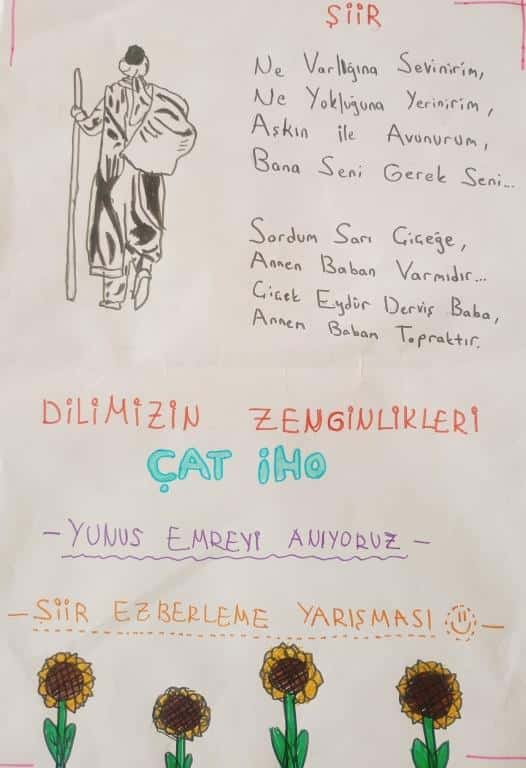 ŞİİR
Ne Varlığına Sevinirim,
Ne Yokluğuna Yerinirim,
Aşkın ile Avunurum,
Bana Seni Gerek Seni...
Sordum Sarı Çiçeğe,
Annen Baban Varmıdır...
Çiçek Eydür Derviş Baba,
Annem Babam Topraktır.
DİLİMİZİN ZENGİNLİKLERİ
ÇAT İHO
- YUNUS EMREYİ ANIYORUZ -
- ŞİİR EZBERLEME YARIŞMASI -